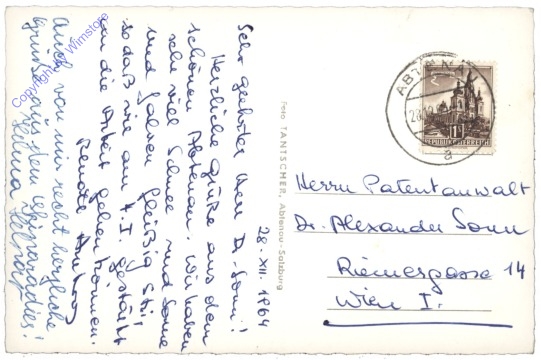 28. XII. 1964
Sehr geehrter Herr Dr. Sonn!
Herzliche Grüße aus dem
schönen Abtenau. Wir haben
sehr viel Schnee und Sonne
und fahren fleißig Ski
sodaß wir am 4. I. gestärkt
an die Arbeit gehen können.
Renate
Auch von mir recht herzliche
Grüße aus dem Schiparadies!
Helma
Foto TANTSCHER, Abtenau-Salzburg
ABTENAU
28.
a
1S
REPUBLIK ÖSTERREICH
Herrn Patentanwalt
Dr. Alexander Sonn
Riemergasse 14
Wien I.
Copyright by Wimstore